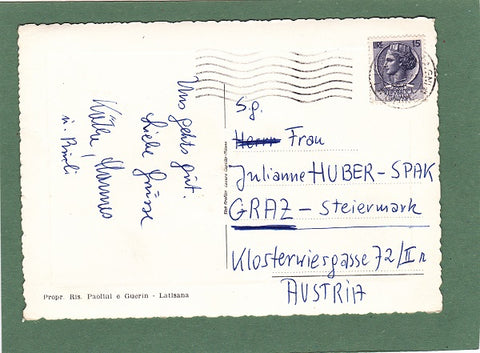 Uns gehts gut.
Liebe Grüsse
Käthe, Hannes
u.
S.g.
Herrn Frau
Julianne HUBER-SPAK
GRAZ - Steiermark
Klosterwiesgasse 72/II r
AUSTRIA
Propr. Ris. Paoltal e Guerin - Latisana
LIRE 15